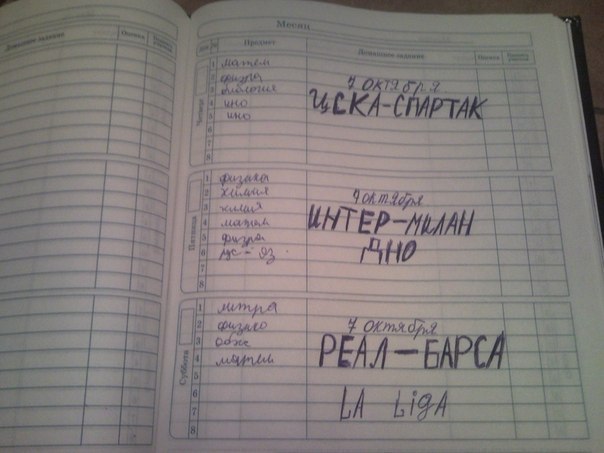 Месяц
Домашнее задание Оценка
Предмет Домашнее задание Оценка
Четверг
1 матем
2 физ-ра
3 биология
4 ино
5 ино
6
7
8
7 октября
ЦСКА-СПАРТАК
Пятница
1 физика
2 химия
3 химия
4 матем
5 физра
6 рус-яз
7
8
7 октября
ИНТЕР-МИЛАН
ДНО
Суббота
1 литра
2 физико
3 обж
4 матем
5
6
7
8
7 октября
РЕАЛ-БАРСА
LA LigA